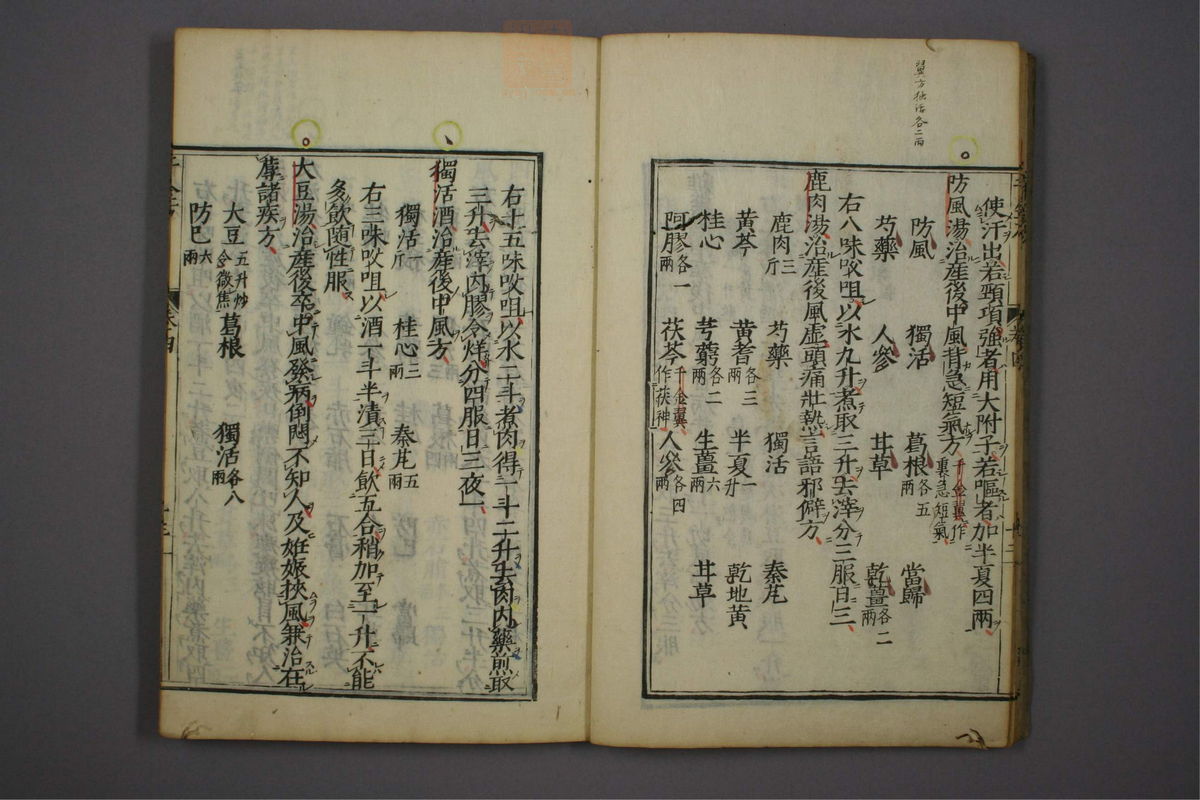 翼方独活各二両
使汗出若頸項強者用大附子若嘔者加半夏四兩
防風湯治產後中風背急短氣方千金翼作裏急短氣
防風 獨活 葛根各五兩 當歸
芍藥 人參 甘草 乾薑各二兩
右八味㕮咀以水九升煮取三升去滓分三服日三
鹿肉湯治產後風虛頭痛壯熱言語邪僻方
鹿肉三斤 芍藥 獨活 秦艽
黃芩 黃耆各三兩 半夏一升 乾地黃
桂心 芎藭各二兩 生薑六兩 甘草
阿膠各一兩 茯苓千金翼作茯神 人參各四兩
右十五味㕮咀以水二斗煮肉得一斗二升去肉內藥煎取
三升去滓內膠令烊分四服日三夜一
獨活酒治產後中風方
獨活一斤 桂心三兩 秦艽五兩
右三味㕮咀以酒一斗半漬三日飲五合稍加至一升不能
多飲隨性服
大豆湯治產後卒中風發病倒悶不知人及妊娠挾風兼治在
蓐諸疾方
大豆五升炒令微焦 葛根 獨活各八兩
防己六兩